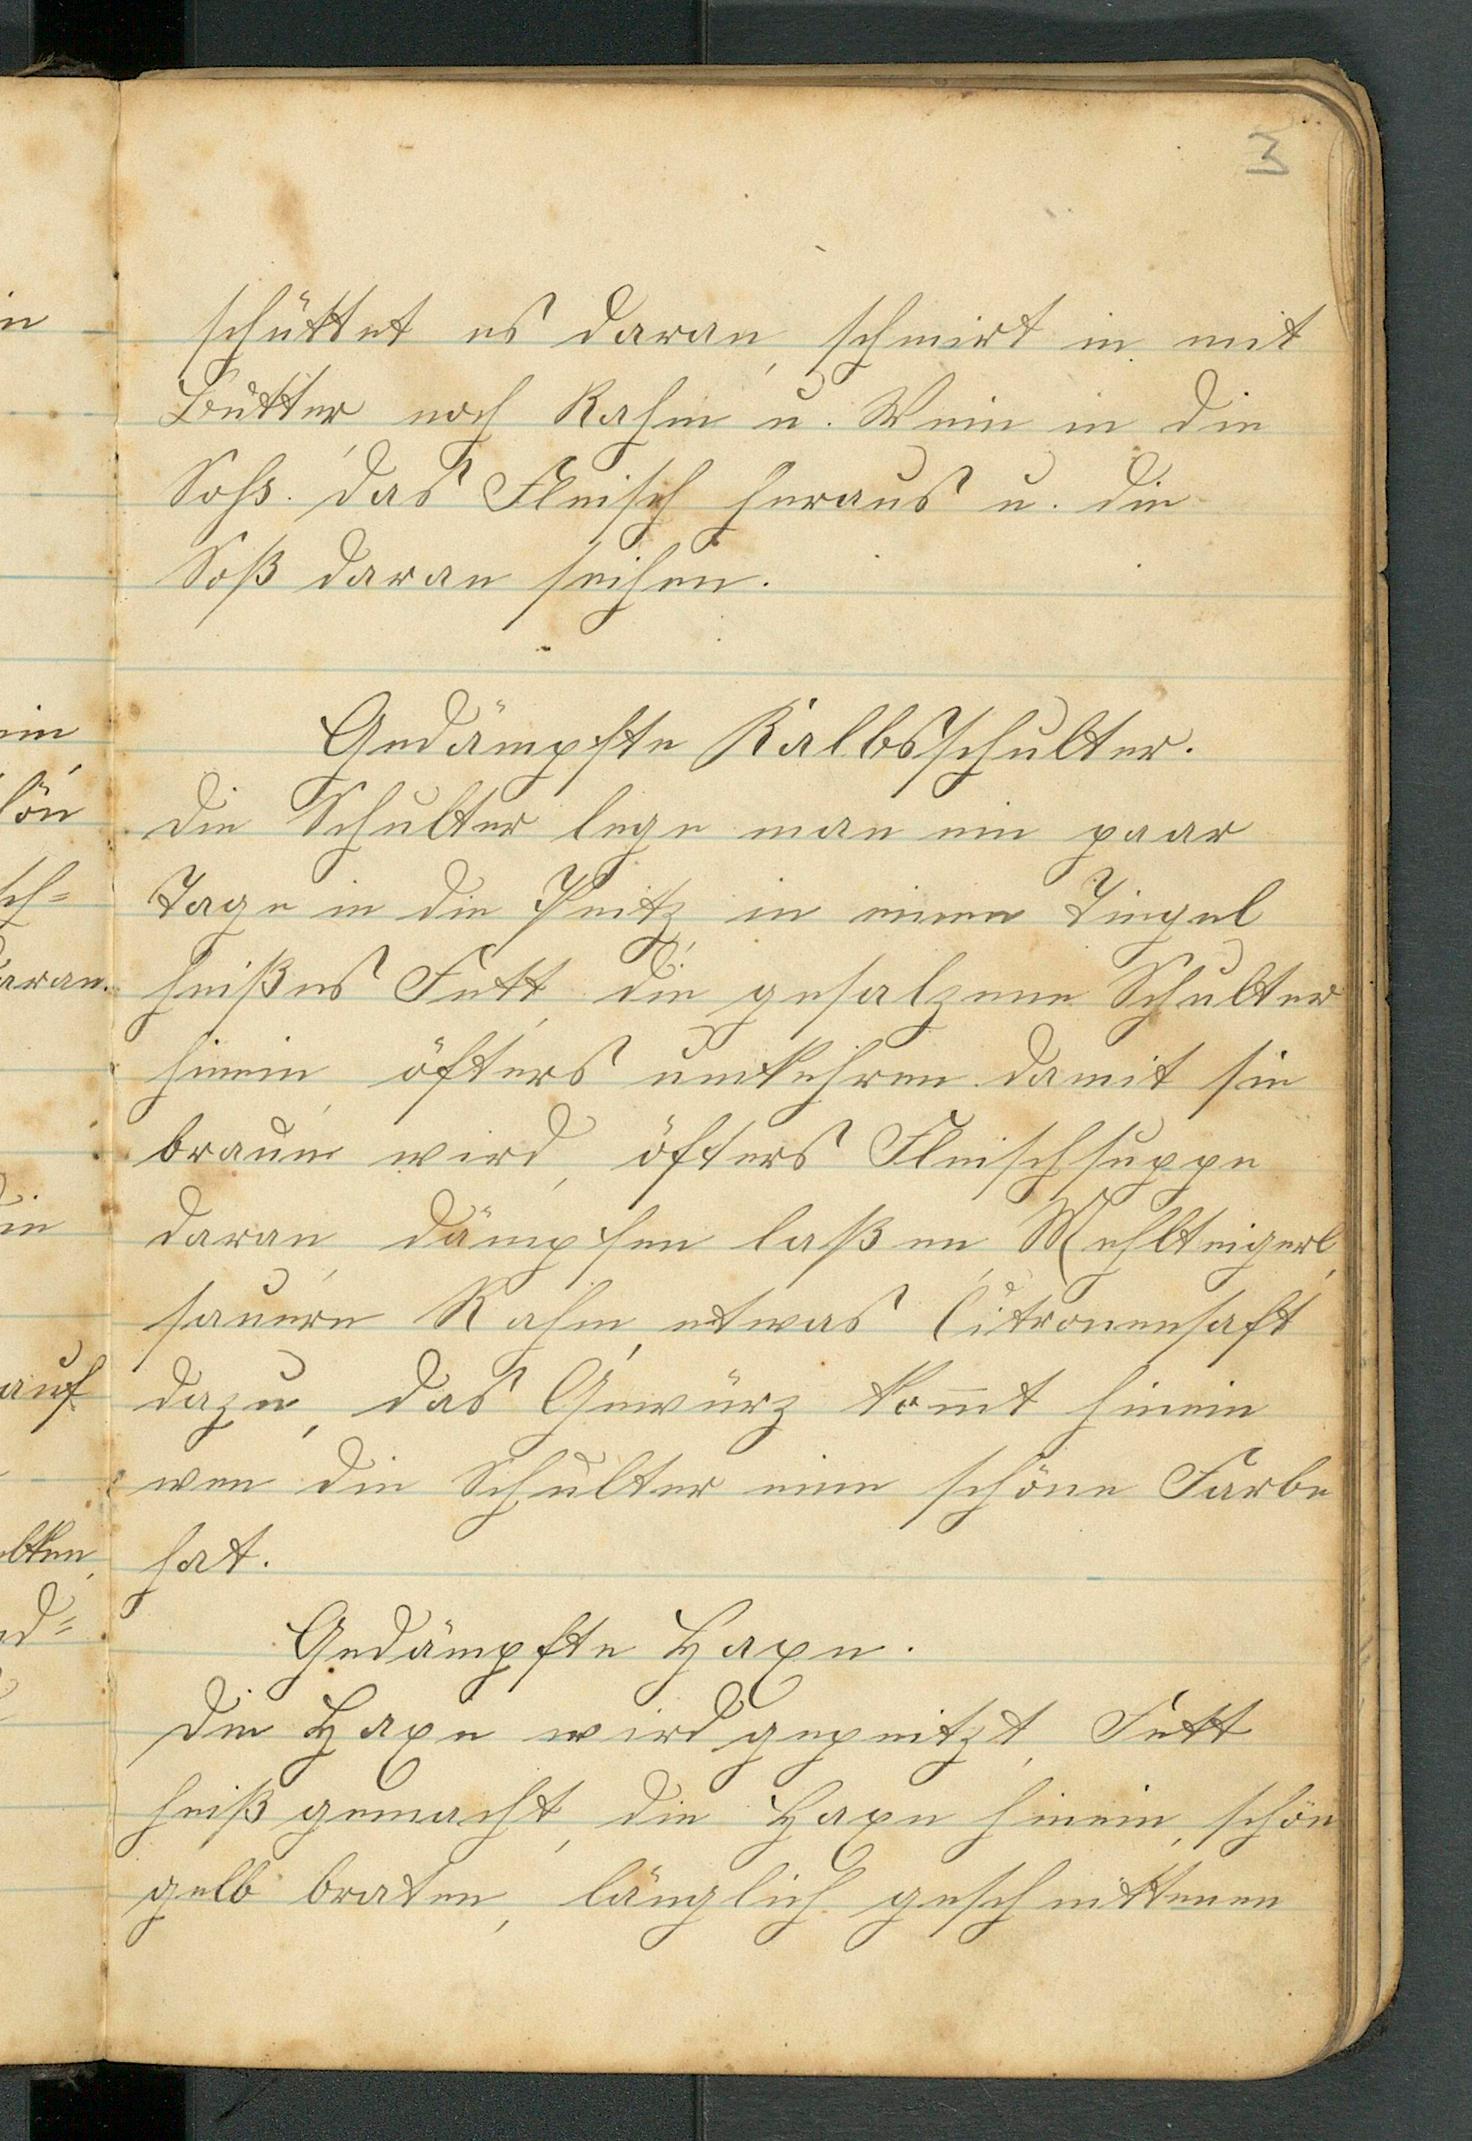 3
schüttet es daran, schmirt in mit
Butter, noch Rahm u. Wein in die
Soß. das Fleisch heraus u. die
Soß daran seihen.
Gedämpfte Kalbsschulter.
Die Schulter lege man ein paar
Tage in die Peitz, in einen Tiegel
heißes Fett, die gesalzene Schulter
hinein, öfters umkehren damit sie
braun wird, öfters Fleischsuppe
daran, dämpfen laßen, Mehlteigerl,
sauern Rahm, etwas Citronensaft
dazu, das Gewürz kom̅t hinein
wen die Schulter eine schöne Farbe
hat.
Gedämpfte Haxe.
Die Haxe wird gepeitzt, Fett
heiß gemacht, die Haxe hinein, schön
gelb braten, länglich geschnittenen